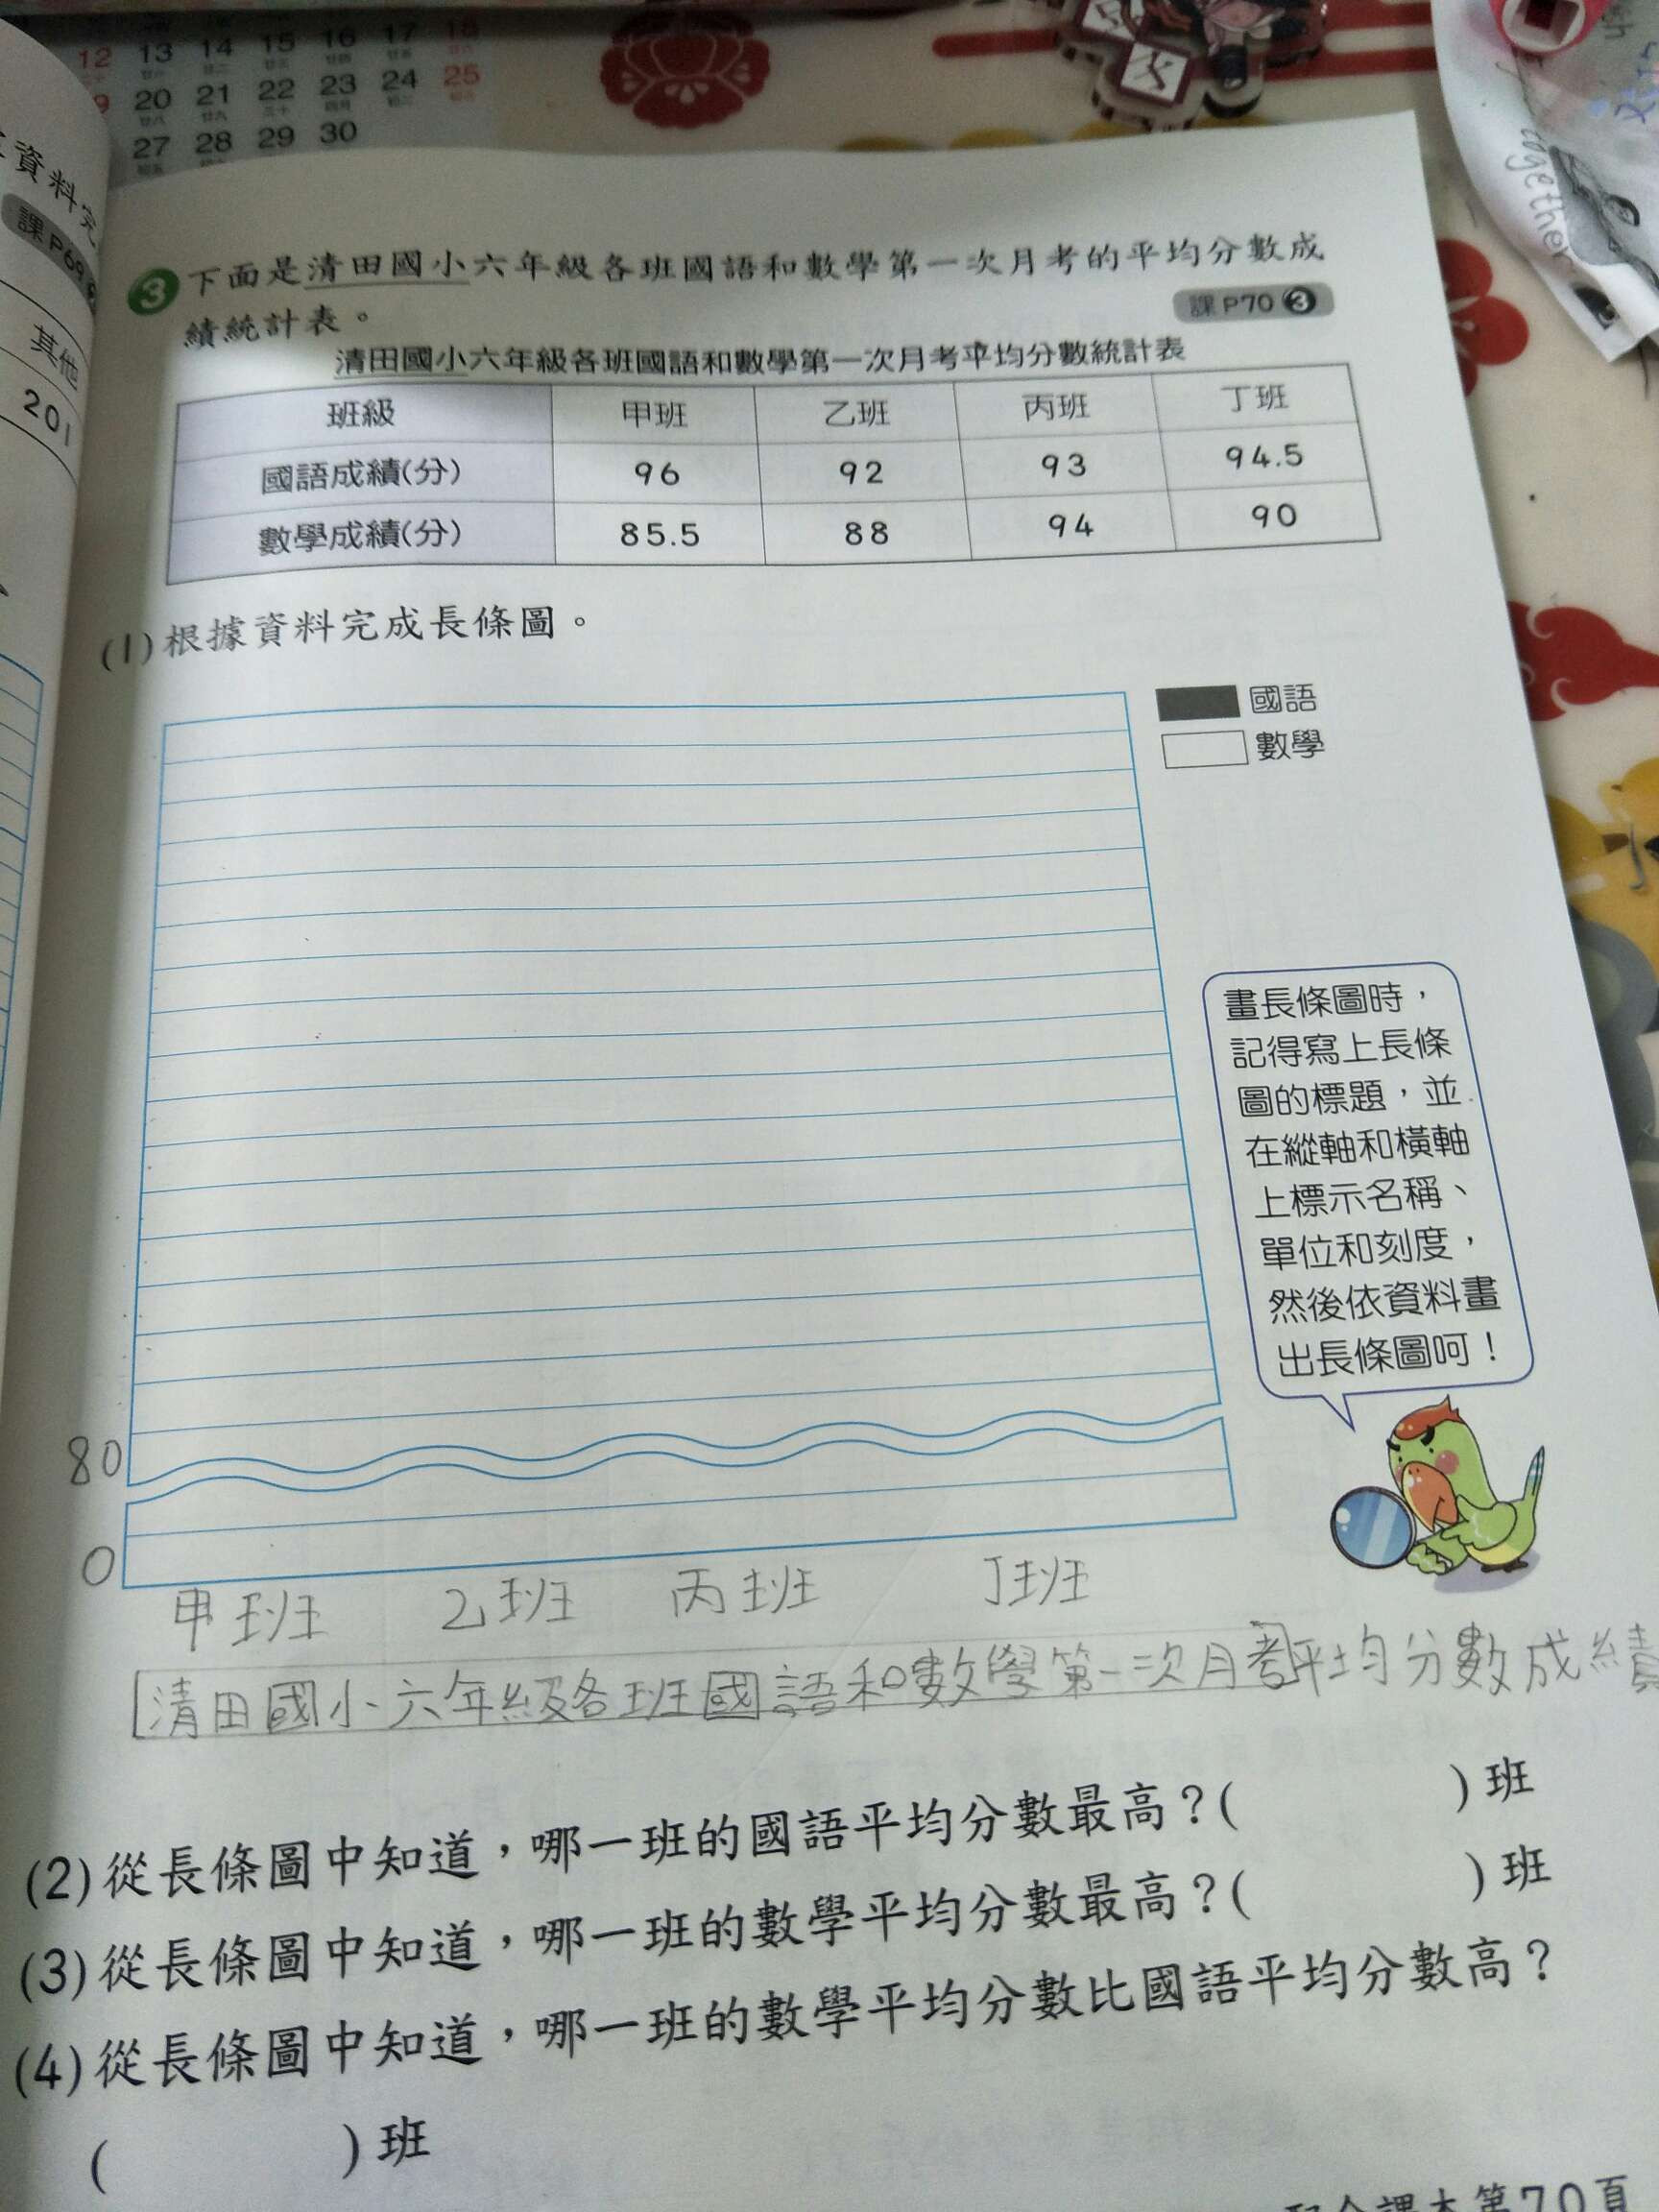 12 13 14 15 16 17 18
20 21 22 23 24 25
27 28 29 30
together
資料完
課P69
其他
201
3 下面是清田國小六年級各班國語和數學第一次月考的平均分數成
績統計表。
課P70 3
清田國小六年級各班國語和數學第一次月考平均分數統計表
班級 甲班 乙班 丙班 丁班
國語成績(分) 96 92 93 94.5
數學成績(分) 85.5 88 94 90
(1)根據資料完成長條圖。
國語
數學
畫長條圖時，
記得寫上長條
圖的標題，並
在縱軸和橫軸
上標示名稱、
單位和刻度，
然後依資料畫
出長條圖呵！
80
0
甲班 乙班 丙班 丁班
清田國小六年級各班國語和數學第一次月考平均分數成績
(2)從長條圖中知道，哪一班的國語平均分數最高？( )班
(3)從長條圖中知道，哪一班的數學平均分數最高？( )班
(4)從長條圖中知道，哪一班的數學平均分數比國語平均分數高？
( )班
配合課本第70頁